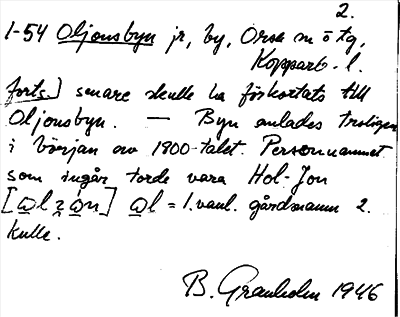 2.
1-54 Oljonsbyn jr, by, Orsa sn ö tg,
Kopparb. l.
forts.] senare skulle ha förkortats till
Oljonsbyn. — Byn anlades troligen
i början av 1800-talet. Personnamnet
som ingår torde vara Hol-Jon
[ɷlʒɷn] ɷl = 1. vanl. gårdsnamn 2.
kulle.
B. Granholm 1946